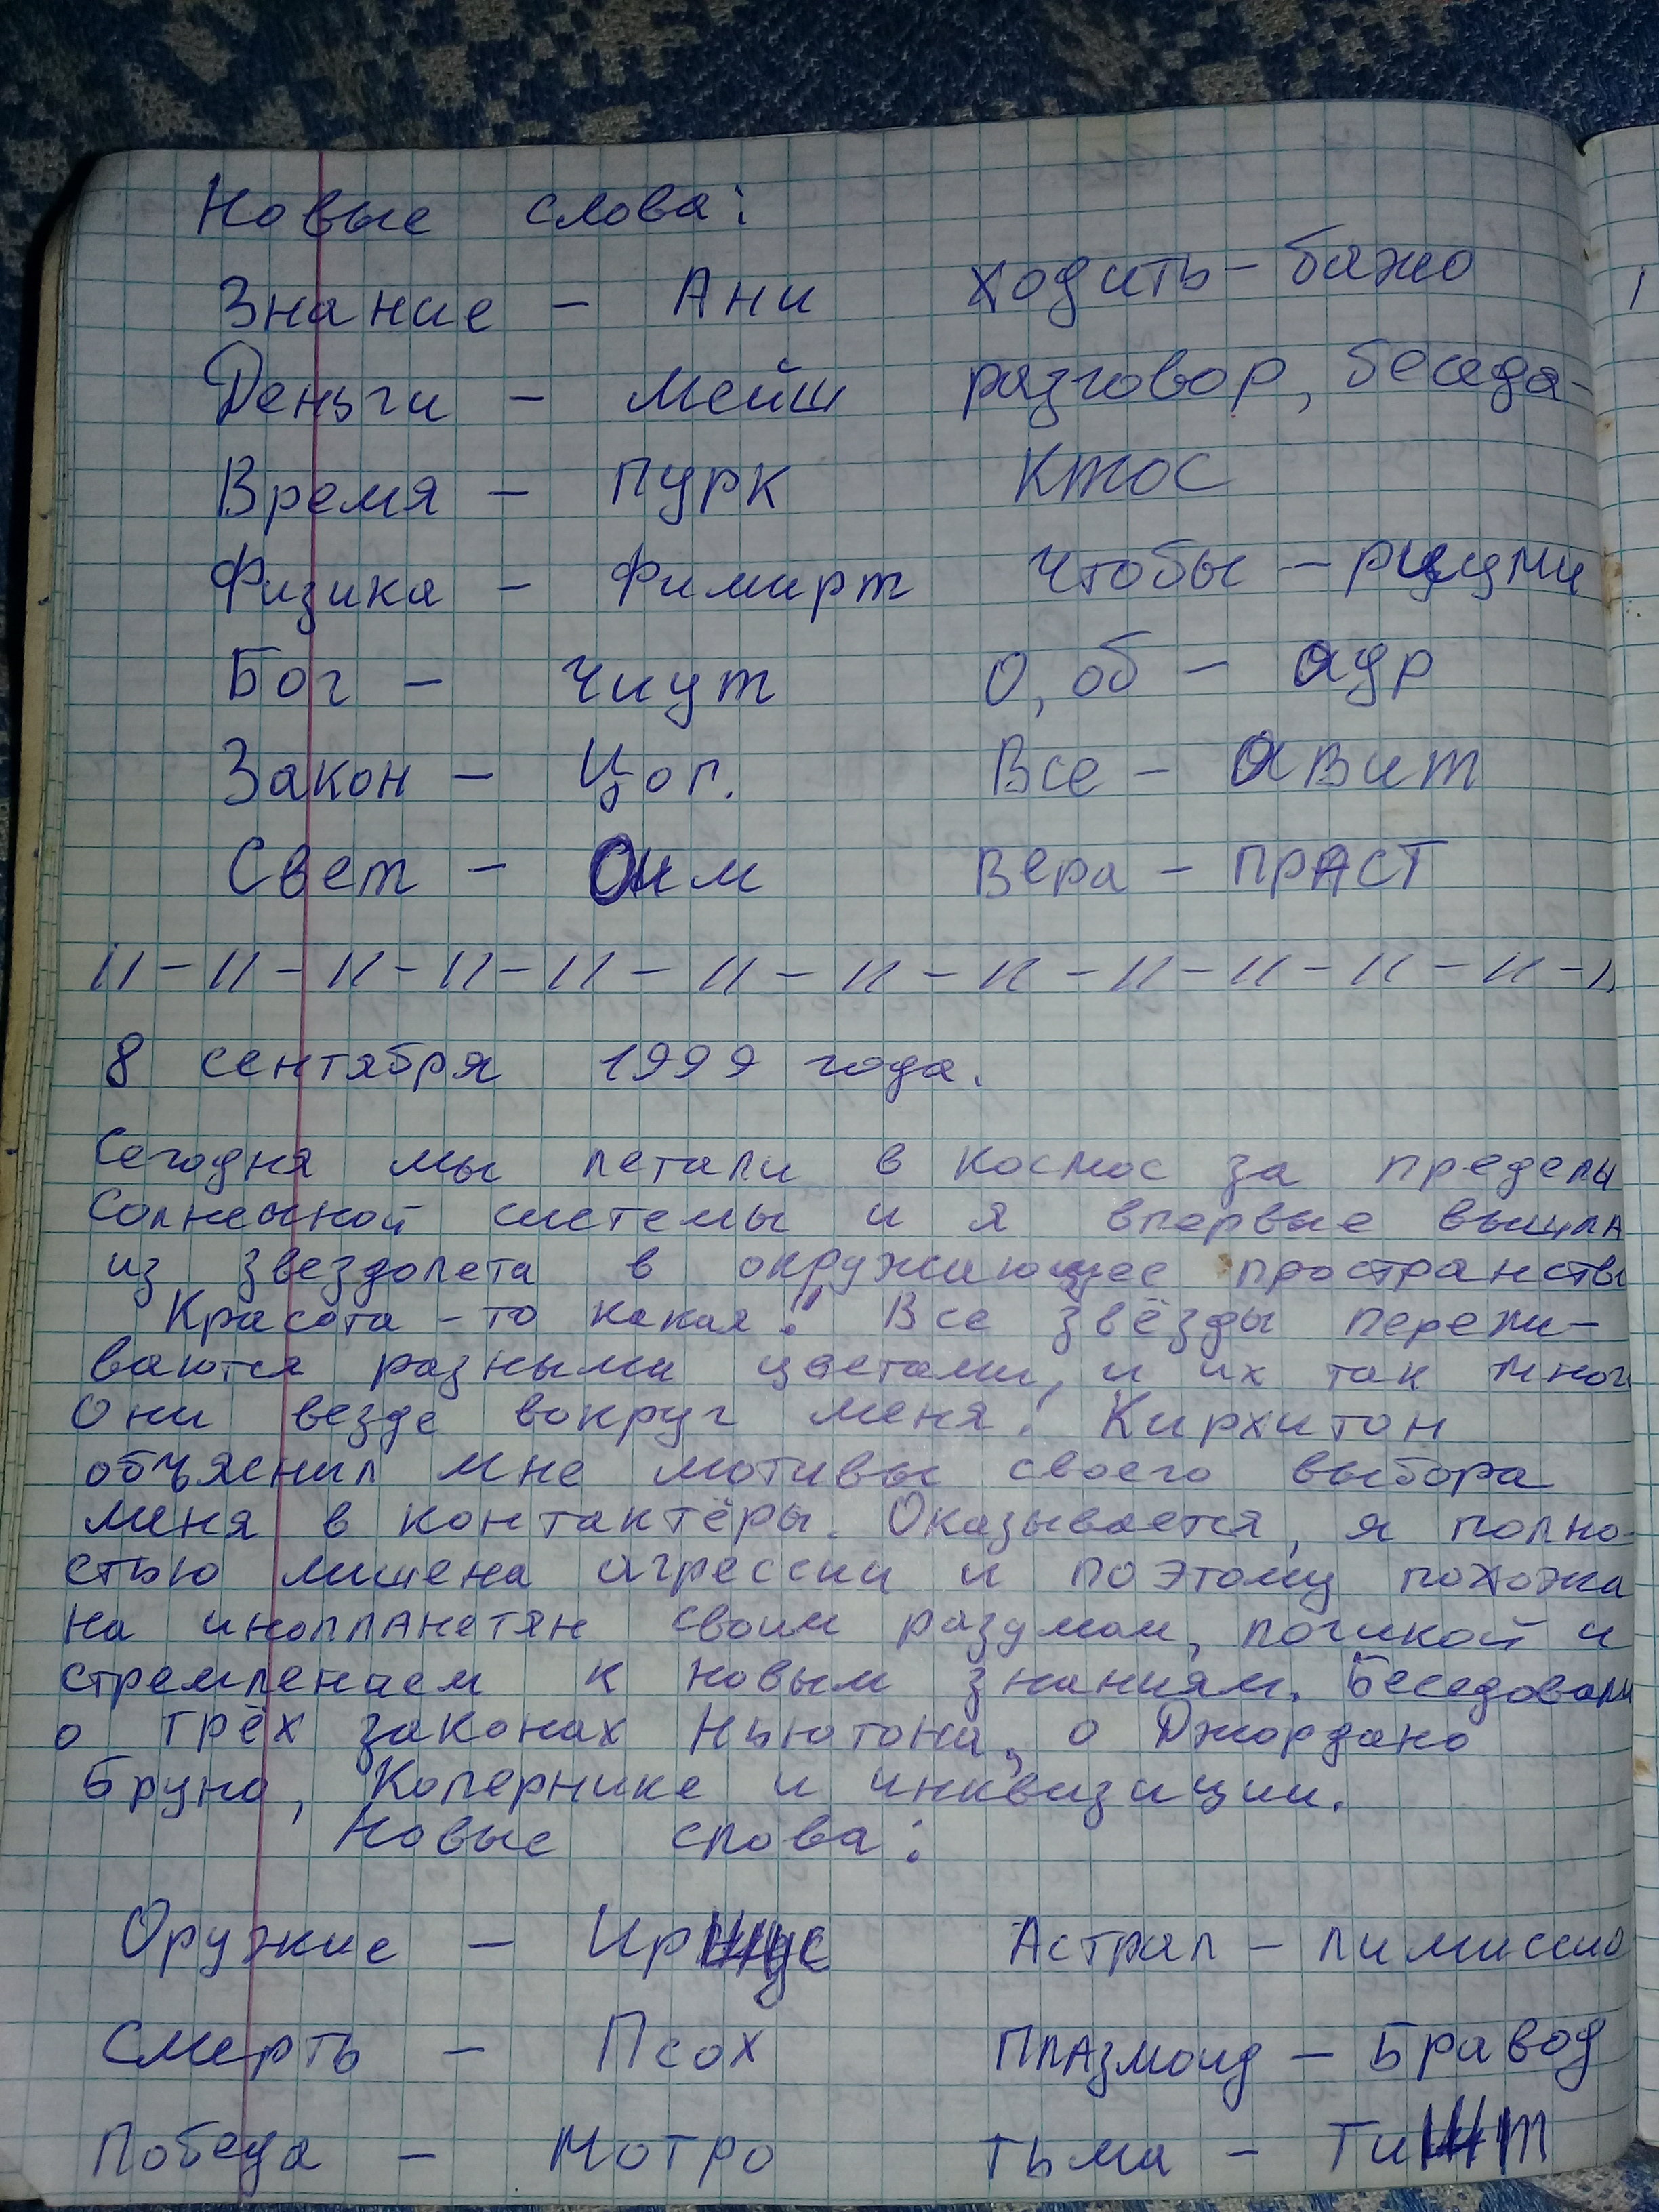 Новые слова:
Знание - Ани
Деньги - мейш
Время - пурк
Физика - Фимирт
Бог - Чиут
Закон - Цоп.
Свет - Оим
ходить - бажо
разговор, беседа -
ктос
Чтобы -
О, об - адр
Все - авит
Вера - ПРАСТ
11 - 11 - 11 - 11 - 11 - 11 - 11 - 11 - 11 - 11 - 11 - 11 -
8 сентября 1999 года.
Сегодня мы летали в космос за пределы
Солнечной системы и я впервые вышла
из звездолета в окружающее пространств
Красота-то какая! Все звёзды перели-
ваются разными цветами, и их так мног
Они везде вокруг меня! Кирхитон
объяснил мне мотивы своего выбора
меня в контактёры. Оказывается, я полно-
стью лишена агрессии и поэтому похожа
на инопланетян своим разумом, логикой и
стремлением к новым знаниям. Беседовали
о трёх законах Ньютона, о Джордано
Бруно, Копернике и инквизиции.
Новые слова:
Оружие -
Смерть - Псох
Победа - Мотро
Астрал - лимиссио
Плазмоид - Бравод
Тьма -